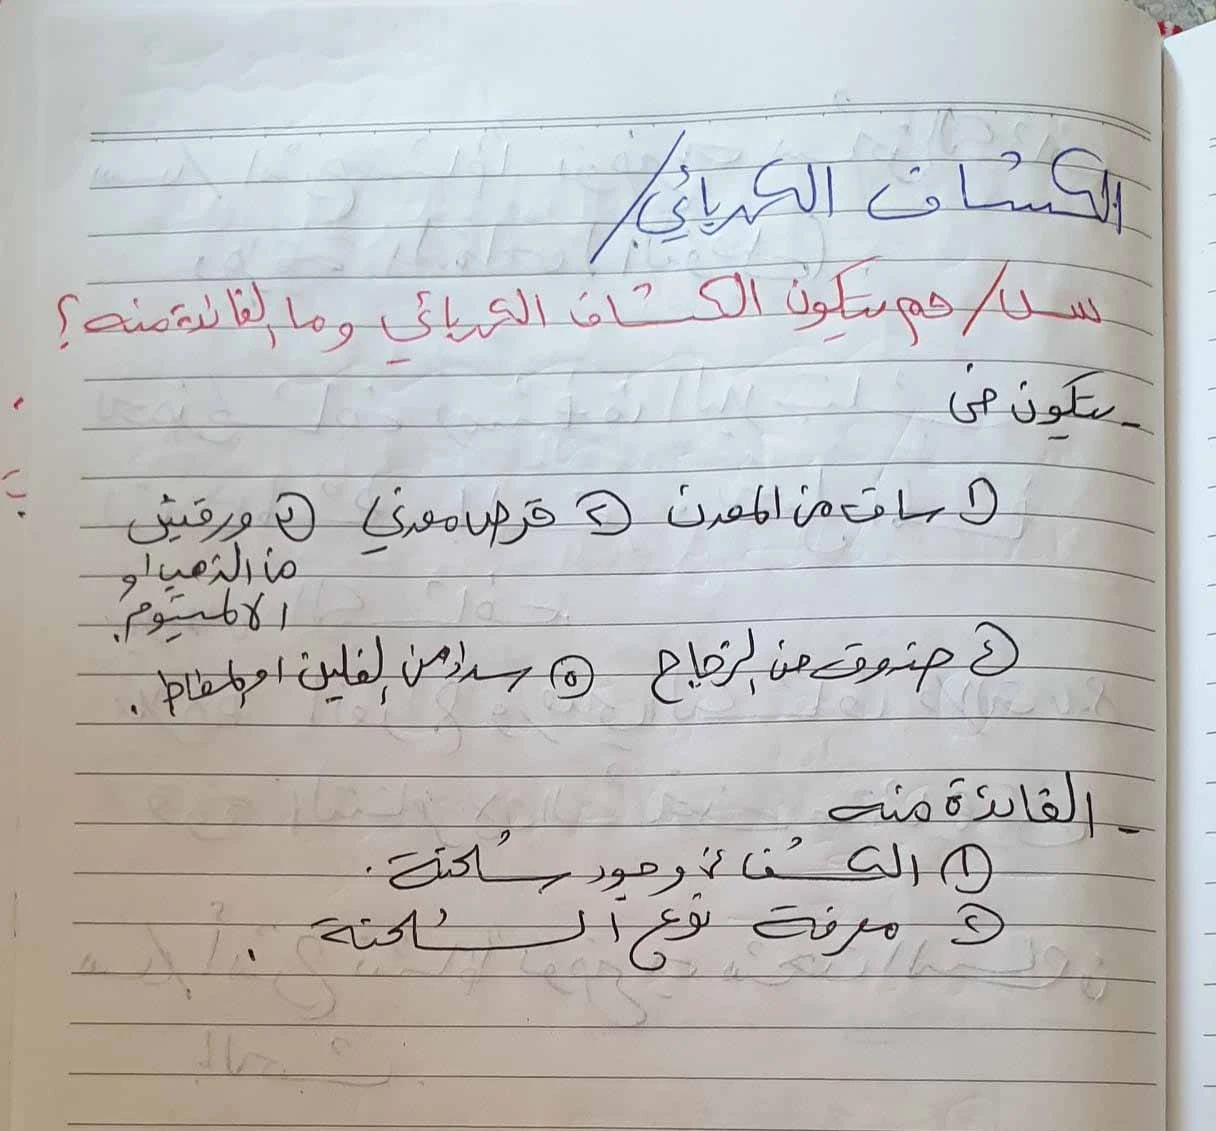 الكشاف الكهربائي/
س/ مم يتكون الكشاف الكهربائي وما الفائدة منه؟
- يتكون من
① ساق من المعدن ② قرص معدني ③ ورقتين
من الذهب او
الالمنيوم.
④ صندوق من الزجاج ⑤ سداد من الفلين او المطاط.
- الفائدة منه
① الكشف عن وجود شحنة.
② معرفة نوع الشحنة.